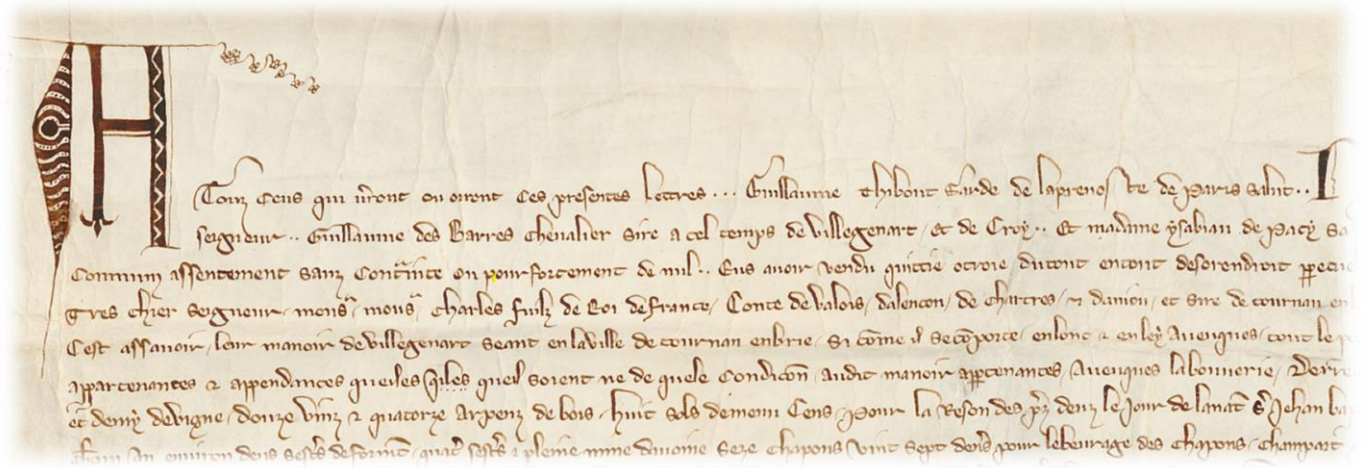 A Touz ceus qui verront ou orront ces presentes lettres... Guillaume Thibout Garde de la prevoste de Paris salut..
seigneur.. Guillaume des Barres chevalier sire a cel temps de villegenart et de Croy.. Et madame ysabiau de Pacy sa
commun assentement sanz contrainte ou pourforcement de nul.. Eus avoir vendu quittie otroie du tout en tout desorendroit
tres chier seigneur mons mons Charles fuilz de Roi de france, Conte de valois, dalencon, de chartres, & daniou, et sire de tournan en
Cest assavoir, leur manoir de villegenart seant en la ville de tournan en brie, si come il se coporte, en lonc & en ley Avenques tout le
appartenantes & appendances queiles qiles queil soient ne de quele condicon, audit manoir apptenantes, Avenques la bouverie,
et demy de vigne, douze vinz & quatorze arpenz de bois, huit sols de menu cens, pour la Reson des prez deuz le Jour de la nat s Jehan
an environ deus sestrs de forment, quatr sestrs & pleine mine davoine seze chapons vint sept denrs pour le beurage des chapons, champart